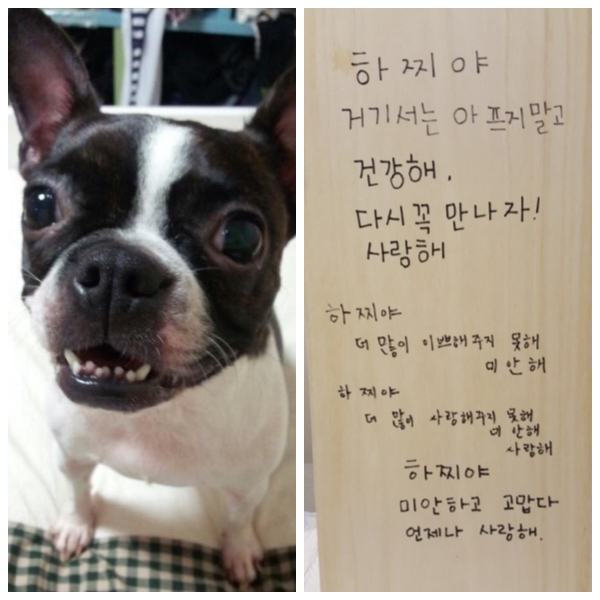 하찌야
거기서는 아프지말고
건강해.
다시꼭 만나자!
사랑해
하찌야
더 많이 이쁘해주지 못해
미안해
하찌야
더 많이 사랑해주지 못해
미안해
사랑해
하찌야
미안하고 고맙다
언제나 사랑해.